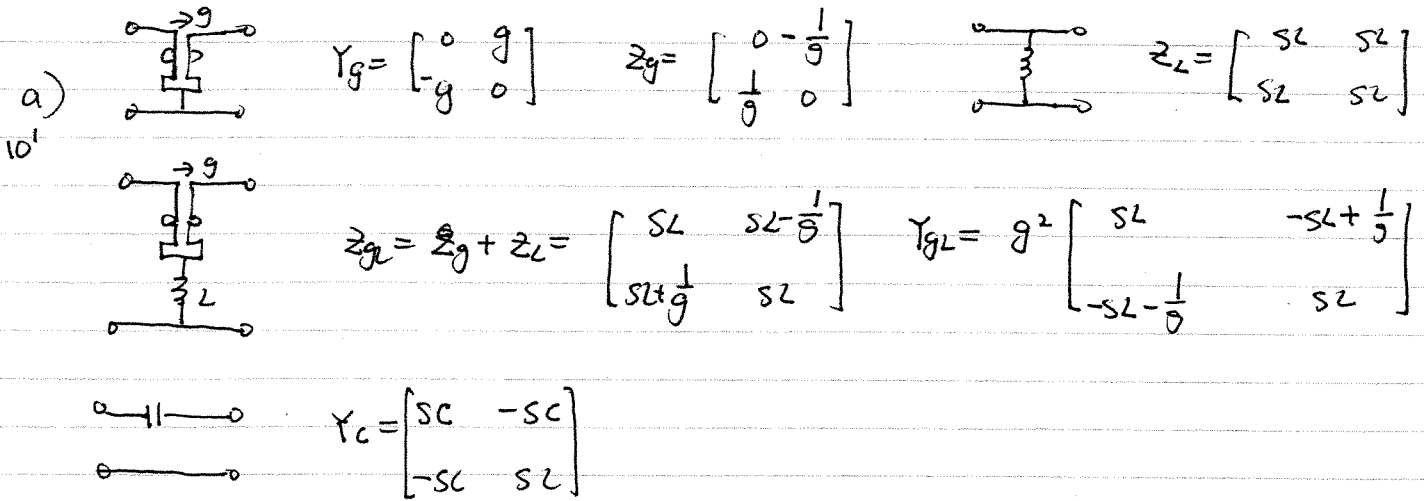 → g
a) Yg = [ 0 g ; -g 0 ] Zg = [ 0 -1/g ; 1/g 0 ] ZL = [ SL SL ; SL SL ]
10'
→ g
L
ZgL = Zg + ZL = [ SL SL-1/g ; SL+1/g SL ] YgL = g² [ SL -SL+1/g ; -SL-1/g SL ]
Yc = [ SC -SC ; -SC SL ]